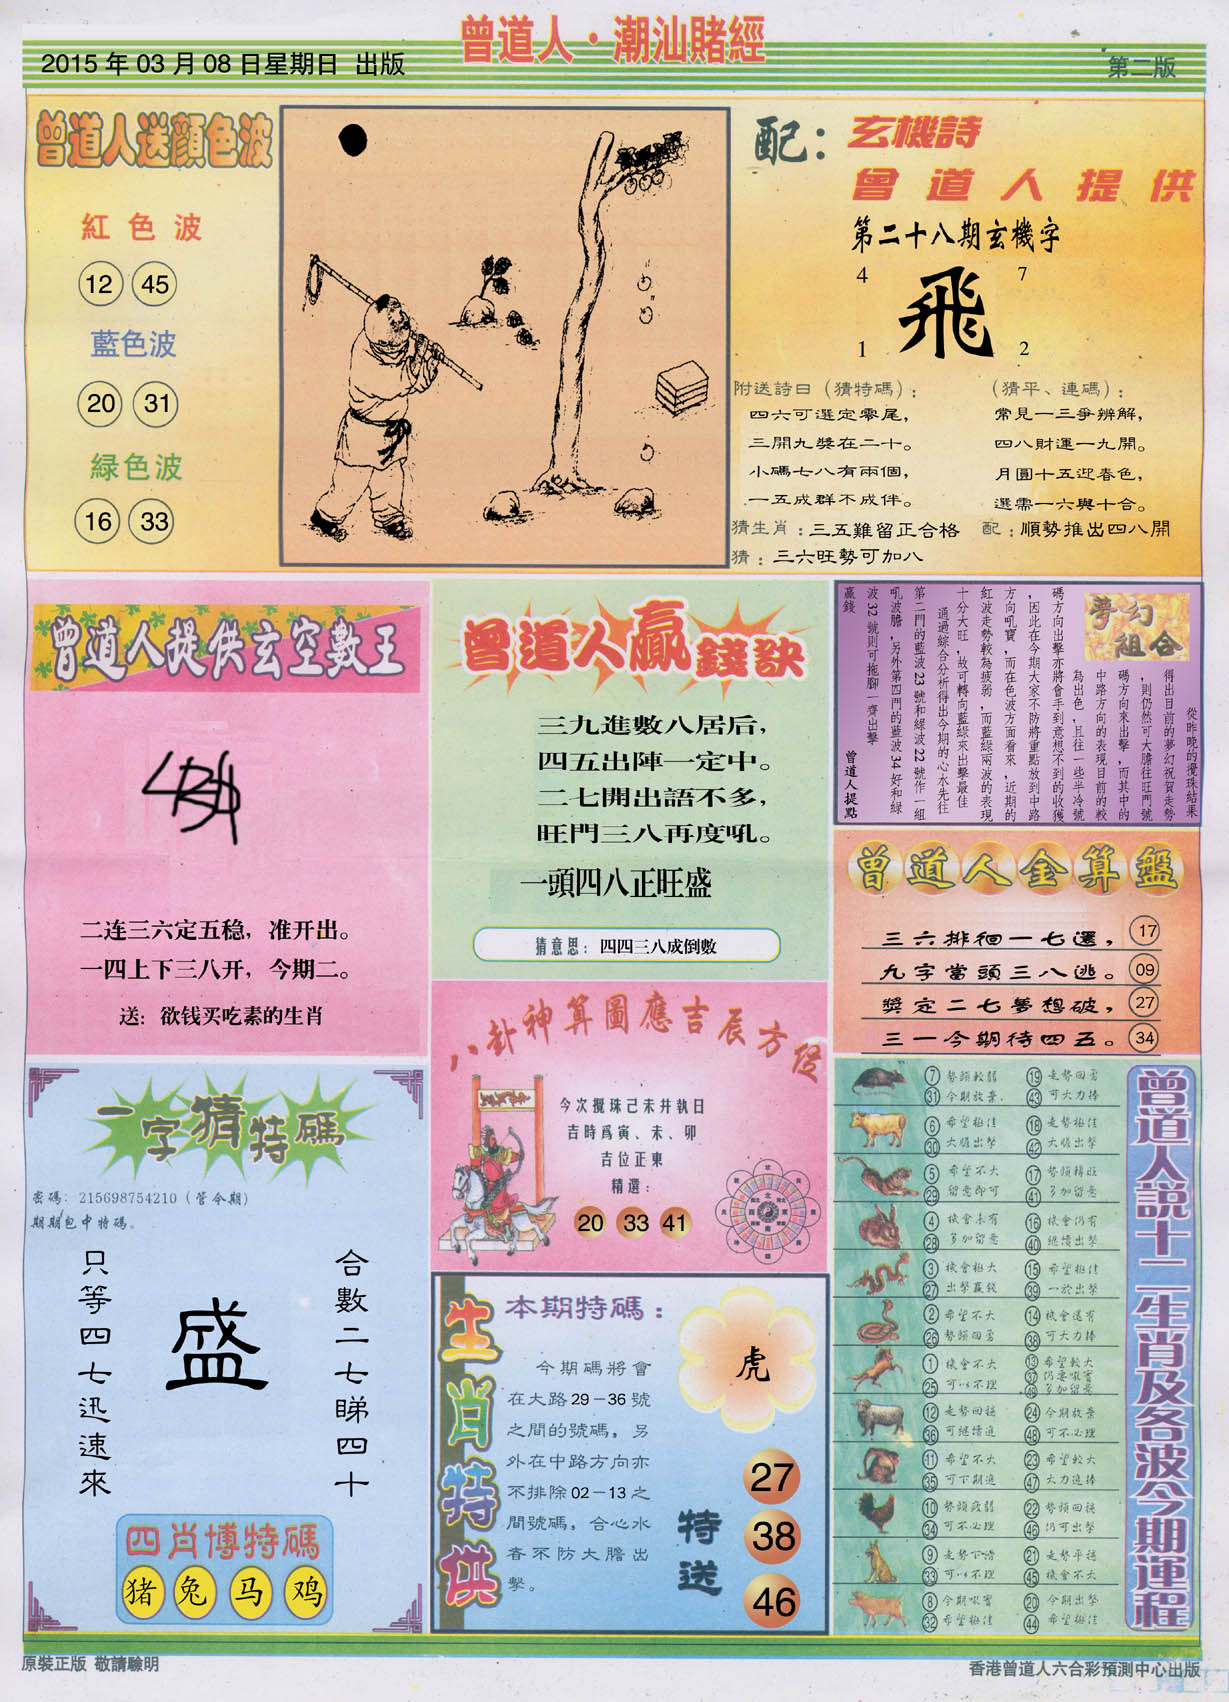 曾道人·潮汕賭經
2015 年 03 月 08 日星期日 出版
第二版
曾道人送顏色波
紅色波
12 45
藍色波
20 31
緑色波
16 33
配：
玄機詩
曾道人提供
第二十八期玄機字
4 7
飛
1 2
附送詩曰（猜特碼）：
四六可選定零尾，
三開九獎在二十。
小碼七八有兩個，
一五成群不成伴。
（猜平、連碼）：
常見一三爭辨解，
四八財運一九開。
月圓十五迎春色，
選需一六與十合。
猜生肖：三五難留正合格
配：順勢推出四八開
猜：三六旺勢可加八
曾道人提供玄空數王
二连三六定五稳，准开出。
一四上下三八开，今期二。
送：欲钱买吃素的生肖
曾道人贏錢訣
三九進數八居后，
四五出陣一定中。
二七開出語不多，
旺門三八再度吼。
一頭四八正旺盛
猜意思：四四三八成倒數
夢幻
組合
從昨晚的攪珠結果
得出目前的夢幻祝賀走勢
，則仍然可大膽往旺門號
碼方向來出擊，而其中的
中路方向的表現目前的較
為出色，且往一些半冷號
碼方向出擊亦將會手到意想不到的收獲
，因此在今期大家不防將重點放到中路
方向吼寶，而在色波方面看來，近期的
紅波走勢較為疲弱，而藍綠兩波的表現
十分大旺，故可轉向藍綠來出擊最佳
通過綜合分析得出今期的心水先往
第二門的藍波 23 號和緑波 22 號作一組
吼波膽，另外第四門的藍波 34 好和綠
波 32 號則可拖腳一齊出擊
贏錢
曾道人提點
曾道人金算盤
三六排徊一七選， 17
九字當頭三八逃。 09
獎定二七夢想破， 27
三一今期待四五。 34
八卦神算圖應吉辰方位
今次攪珠己未井執日
吉時爲寅、未、卯
吉位正東
精選：
20 33 41
一字猜特碼
密碼：215698754210（管今期）
期期包中特碼。
合數二七睇四十
盛
只等四七迅速來
四肖博特碼
猪 兔 马 鸡
生肖特供
本期特碼：
今期碼將會
在大路29－36號
之間的號碼，另
外在中路方向亦
不排除02－13之
間號碼，合心水
者不防大膽出
擊。
虎
特送
27
38
46
曾道人說十二生肖及各波今期運程
7 勢頭較弱 19 走勢回勇
31 今期放棄 43 可大力捧
6 希望極佳 18 走勢極佳
30 大膽出擊 42 大膽出擊
5 希望不大 17 勢頭轉旺
29 留意即可 41 多加留意
4 機會未有 16 機會仍有
28 多加留意 40 繼續出擊
3 機會極大 15 希望極佳
27 出擊贏錢 39 一於出擊
2 希望不大 14 機會還有
26 勢頭回勇 38 可大力捧
1 機會不大 13 希望較大
25 可以不理 37 仍要吼實
49 多加留意
12 走勢回穩 24 今期放棄
36 可繼續追 48 可不必理
11 希望不大 23 希望較大
35 可下期追 47 大力追捧
10 勢頭疲弱 22 勢頭回穩
34 可不必理 46 仍可出擊
9 走勢下滑 21 走勢平穩
33 可以不理 45 機會不大
8 今期吼實 20 今期出擊
32 希望極佳 44 希望極佳
原裝正版 敬請驗明
香港曾道人六合彩預測中心出版